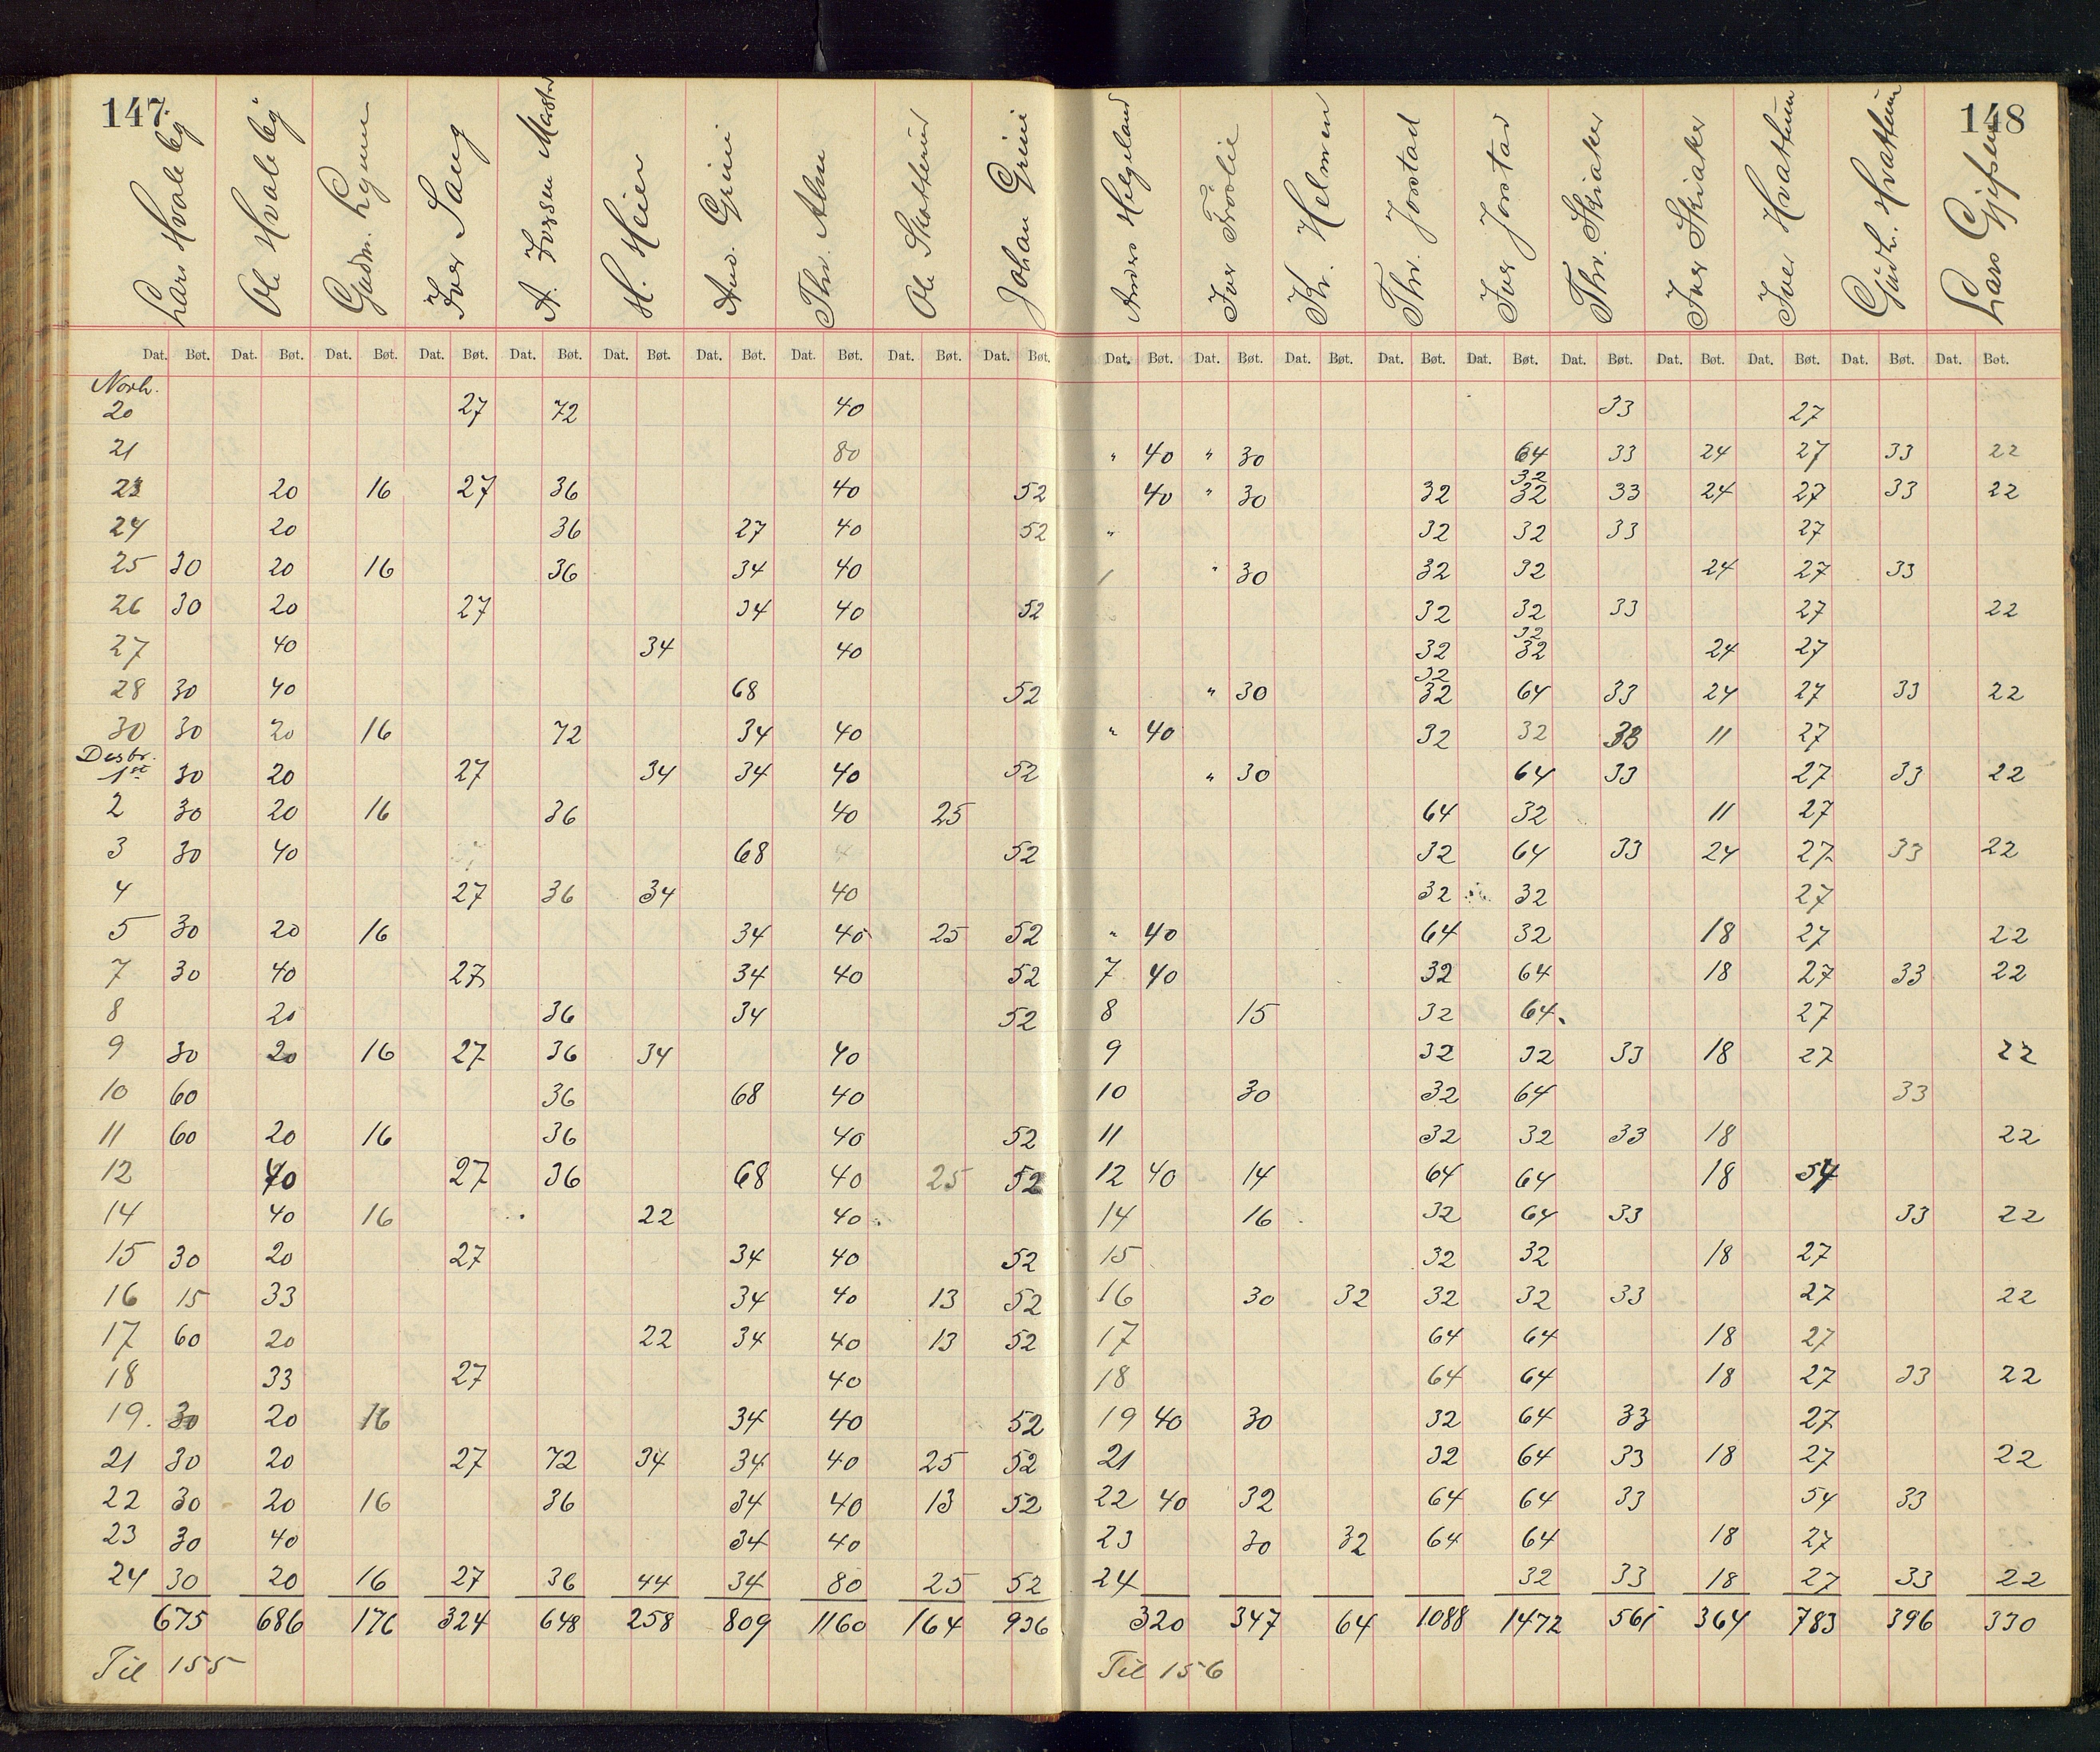 147 148
Lars Hvaleby Ole Hvaleby Gudm. Lynne Iver Saug A. Iversen H. Heier And. Grini Thr. Alm Ole Skatterud Johan Grini Anders Helgeland Iver Frøslie Kr. Helmen Thr. Jorstad Iver Jorstad Thr. Skiaker Iver Skiaker Iver Hvattum Gudb. Hvattum Lars Gjefsen
Dat. Bøt. Dat. Bøt. Dat. Bøt. Dat. Bøt. Dat. Bøt. Dat. Bøt. Dat. Bøt. Dat. Bøt. Dat. Bøt. Dat. Bøt. Dat. Bøt. Dat. Bøt. Dat. Bøt. Dat. Bøt. Dat. Bøt. Dat. Bøt. Dat. Bøt. Dat. Bøt. Dat. Bøt. Dat. Bøt.
Novb.
20 27 72 40 33 27
21 80 " 40 " 30 64 33 24 27 33 22
32
23 20 16 27 36 40 52 40 " 30 32 32 33 24 27 33 22
24 20 36 27 40 52 " 32 32 33 27
25 30 20 16 36 34 40 " 30 32 32 24 27 33
26 30 20 27 34 40 52 32 32 33 27 22
32
27 40 34 40 32 32 24 27
32
28 30 40 68 52 " 30 32 64 33 24 27 33 22
30 30 20 16 72 34 40 " 40 32 32 33 11 27
Desbr.
1st 30 20 27 34 34 40 52 " 30 64 33 27 33 22
2 30 20 16 36 40 25 64 32 11 27
3 30 40 68 52 32 64 33 24 27 33 22
4 27 36 34 40 32 32 27
5 30 20 16 34 40 25 52 " 40 64 32 18 27 22
7 30 40 27 34 40 52 7 40 32 64 18 27 33 22
8 20 36 34 52 8 15 32 64 27
9 30 20 16 27 36 34 40 9 32 32 33 18 27 22
10 60 36 68 40 10 30 32 64 33
11 60 20 16 36 40 52 11 32 32 33 18 22
12 40 27 36 68 40 25 52 12 40 14 64 64 18 54
14 40 16 22 40 14 16 32 64 33 33 22
15 30 20 27 34 40 52 15 32 32 18 27
16 15 33 34 40 13 52 16 30 32 32 32 33 27 22
17 60 20 22 34 40 13 52 17 64 64 18 27
18 33 27 40 18 64 64 18 27 33 22
19. 30 20 16 34 40 52 19 40 30 32 64 33 27
21 30 20 27 72 34 34 40 25 52 21 32 64 33 18 27 22
22 30 20 16 36 34 40 13 52 22 40 32 64 64 33 54 33
23 30 40 34 40 23 30 32 64 64 18 27
24 30 20 16 27 36 44 34 80 25 52 24 32 33 18 27 33 22
675 686 176 324 648 258 809 1160 164 936 320 347 64 1088 1472 561 364 783 396 330
Til 155 Til 156